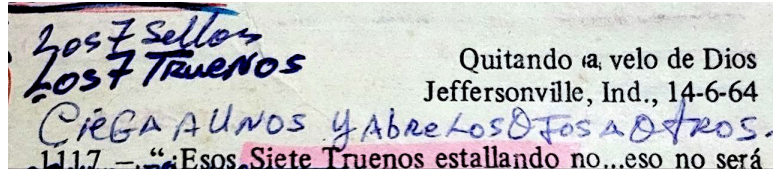 Los 7 Sellos
Los 7 TRUENOS
Quitando la, velo de Dios
Jeffersonville, Ind., 14-6-64
CiEGA A UNOS y AbRe Los OJos A OtROS.
1117 – “¡Esos Siete Truenos estallando no...eso no será